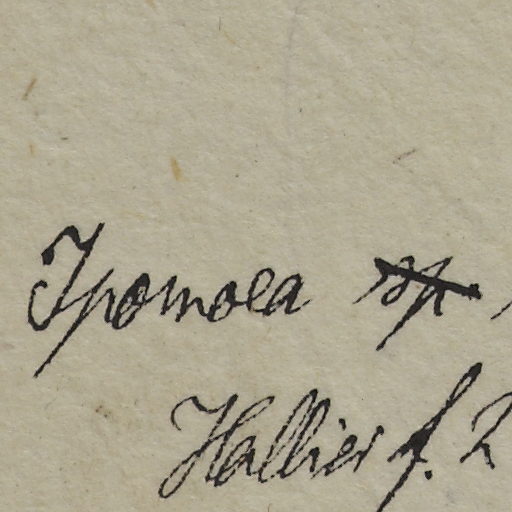 Ipomoea sp.
Hallier f.